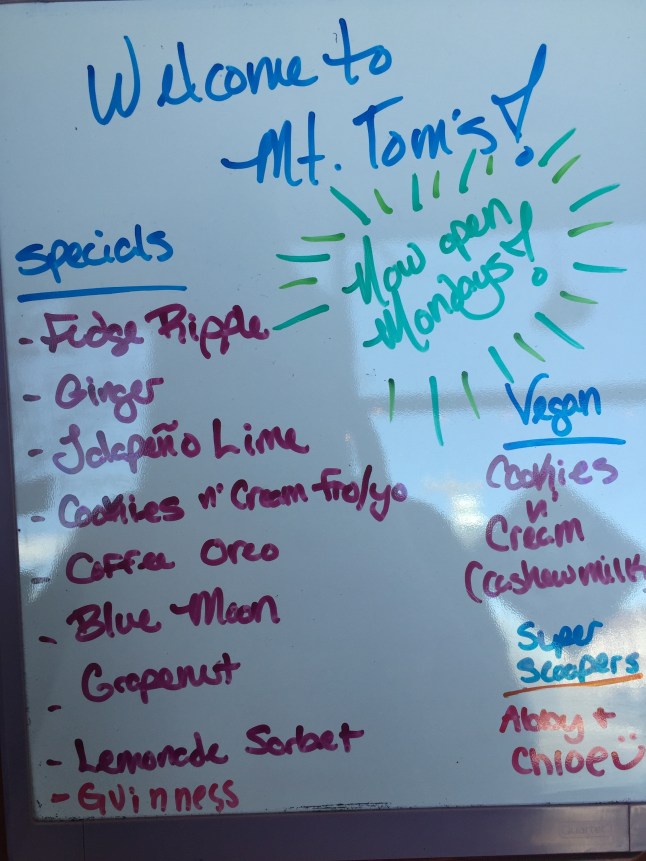 Welcome to
Mt. Tom's!
Now open
Mondays!
Specials
- Fudge Ripple
- Ginger
- Jalapeño Lime
- Cookies n' Cream fro/yo
- Coffee Oreo
- Blue Moon
- Grapenut
- Lemonade Sorbet
- Guinness
Vegan
Cookies
n'
Cream
(cashewmilk
Super
Scoopers
Abby +
Chloe